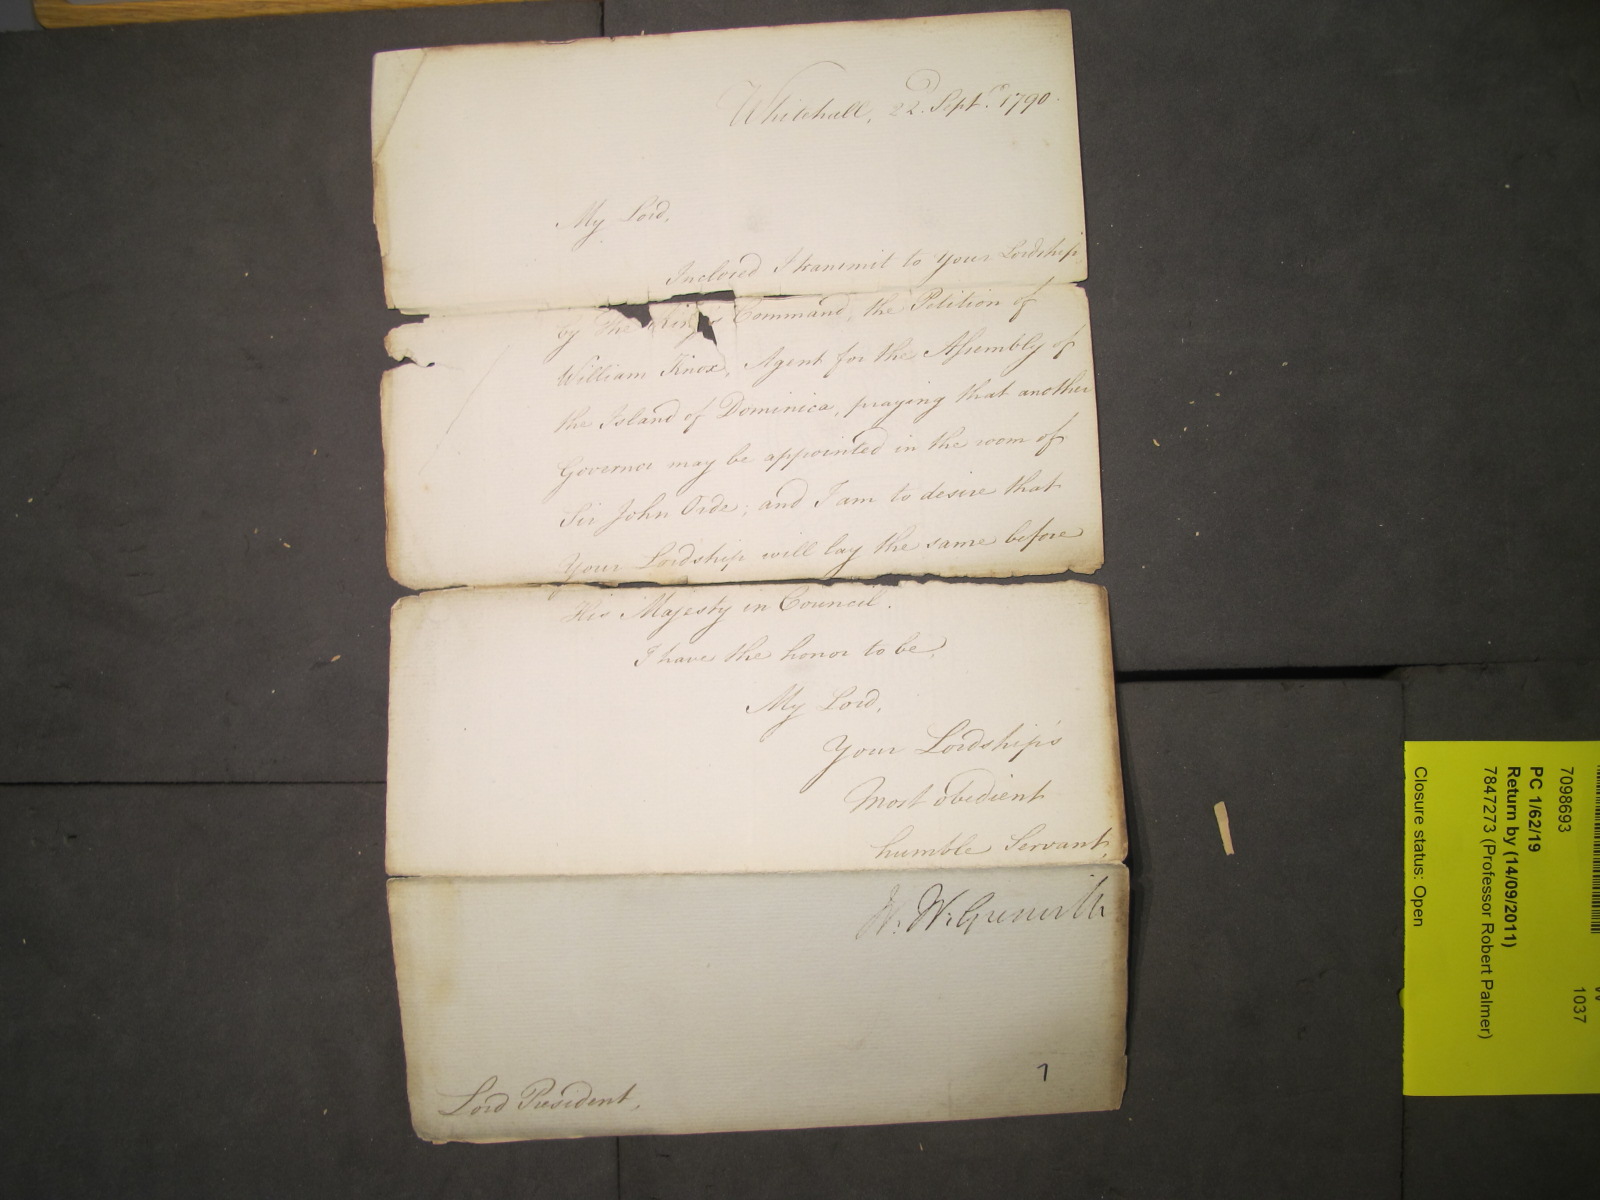 Whitehall, 22d. Septr. 1790.
My Lord,
Inclosed I transmit to Your Lordship,
by the King's Command, the Petition of
William Knox, Agent for the Assembly of
the Island of Dominica, praying that another
Governor may be appointed in the room of
Sir John Orde; and I am to desire that
Your Lordship will lay the same before
His Majesty in Council.
I have the honor to be,
My Lord,
Your Lordship's
Most obedient
humble Servant,
W. W. Grenville
7
Lord President,
7098693
1037
PC 1/62/19
Return by (14/09/2011)
7847273 (Professor Robert Palmer)
Closure status: Open